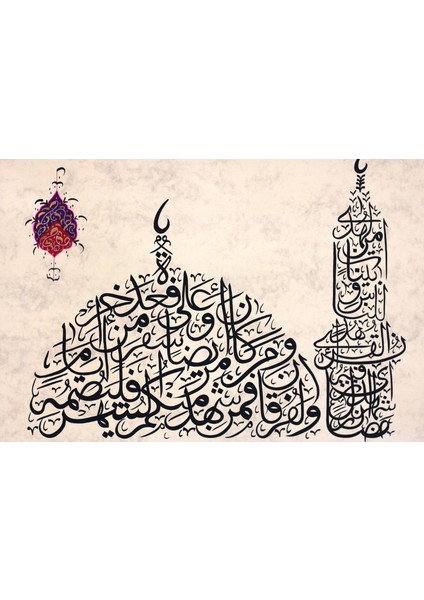 شهر رمضان الذي أنزل فيه القرآن هدى للناس وبينات من الهدى
والفرقان فمن شهد منكم الشهر فليصمه
ومن كان مريضا أو على سفر فعدة من أيام أخر